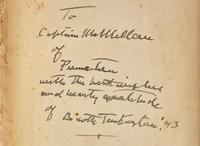 To
Captain McMillan
of
with the best wishes
and hearty gratitude
of Booth Tarkington. '03